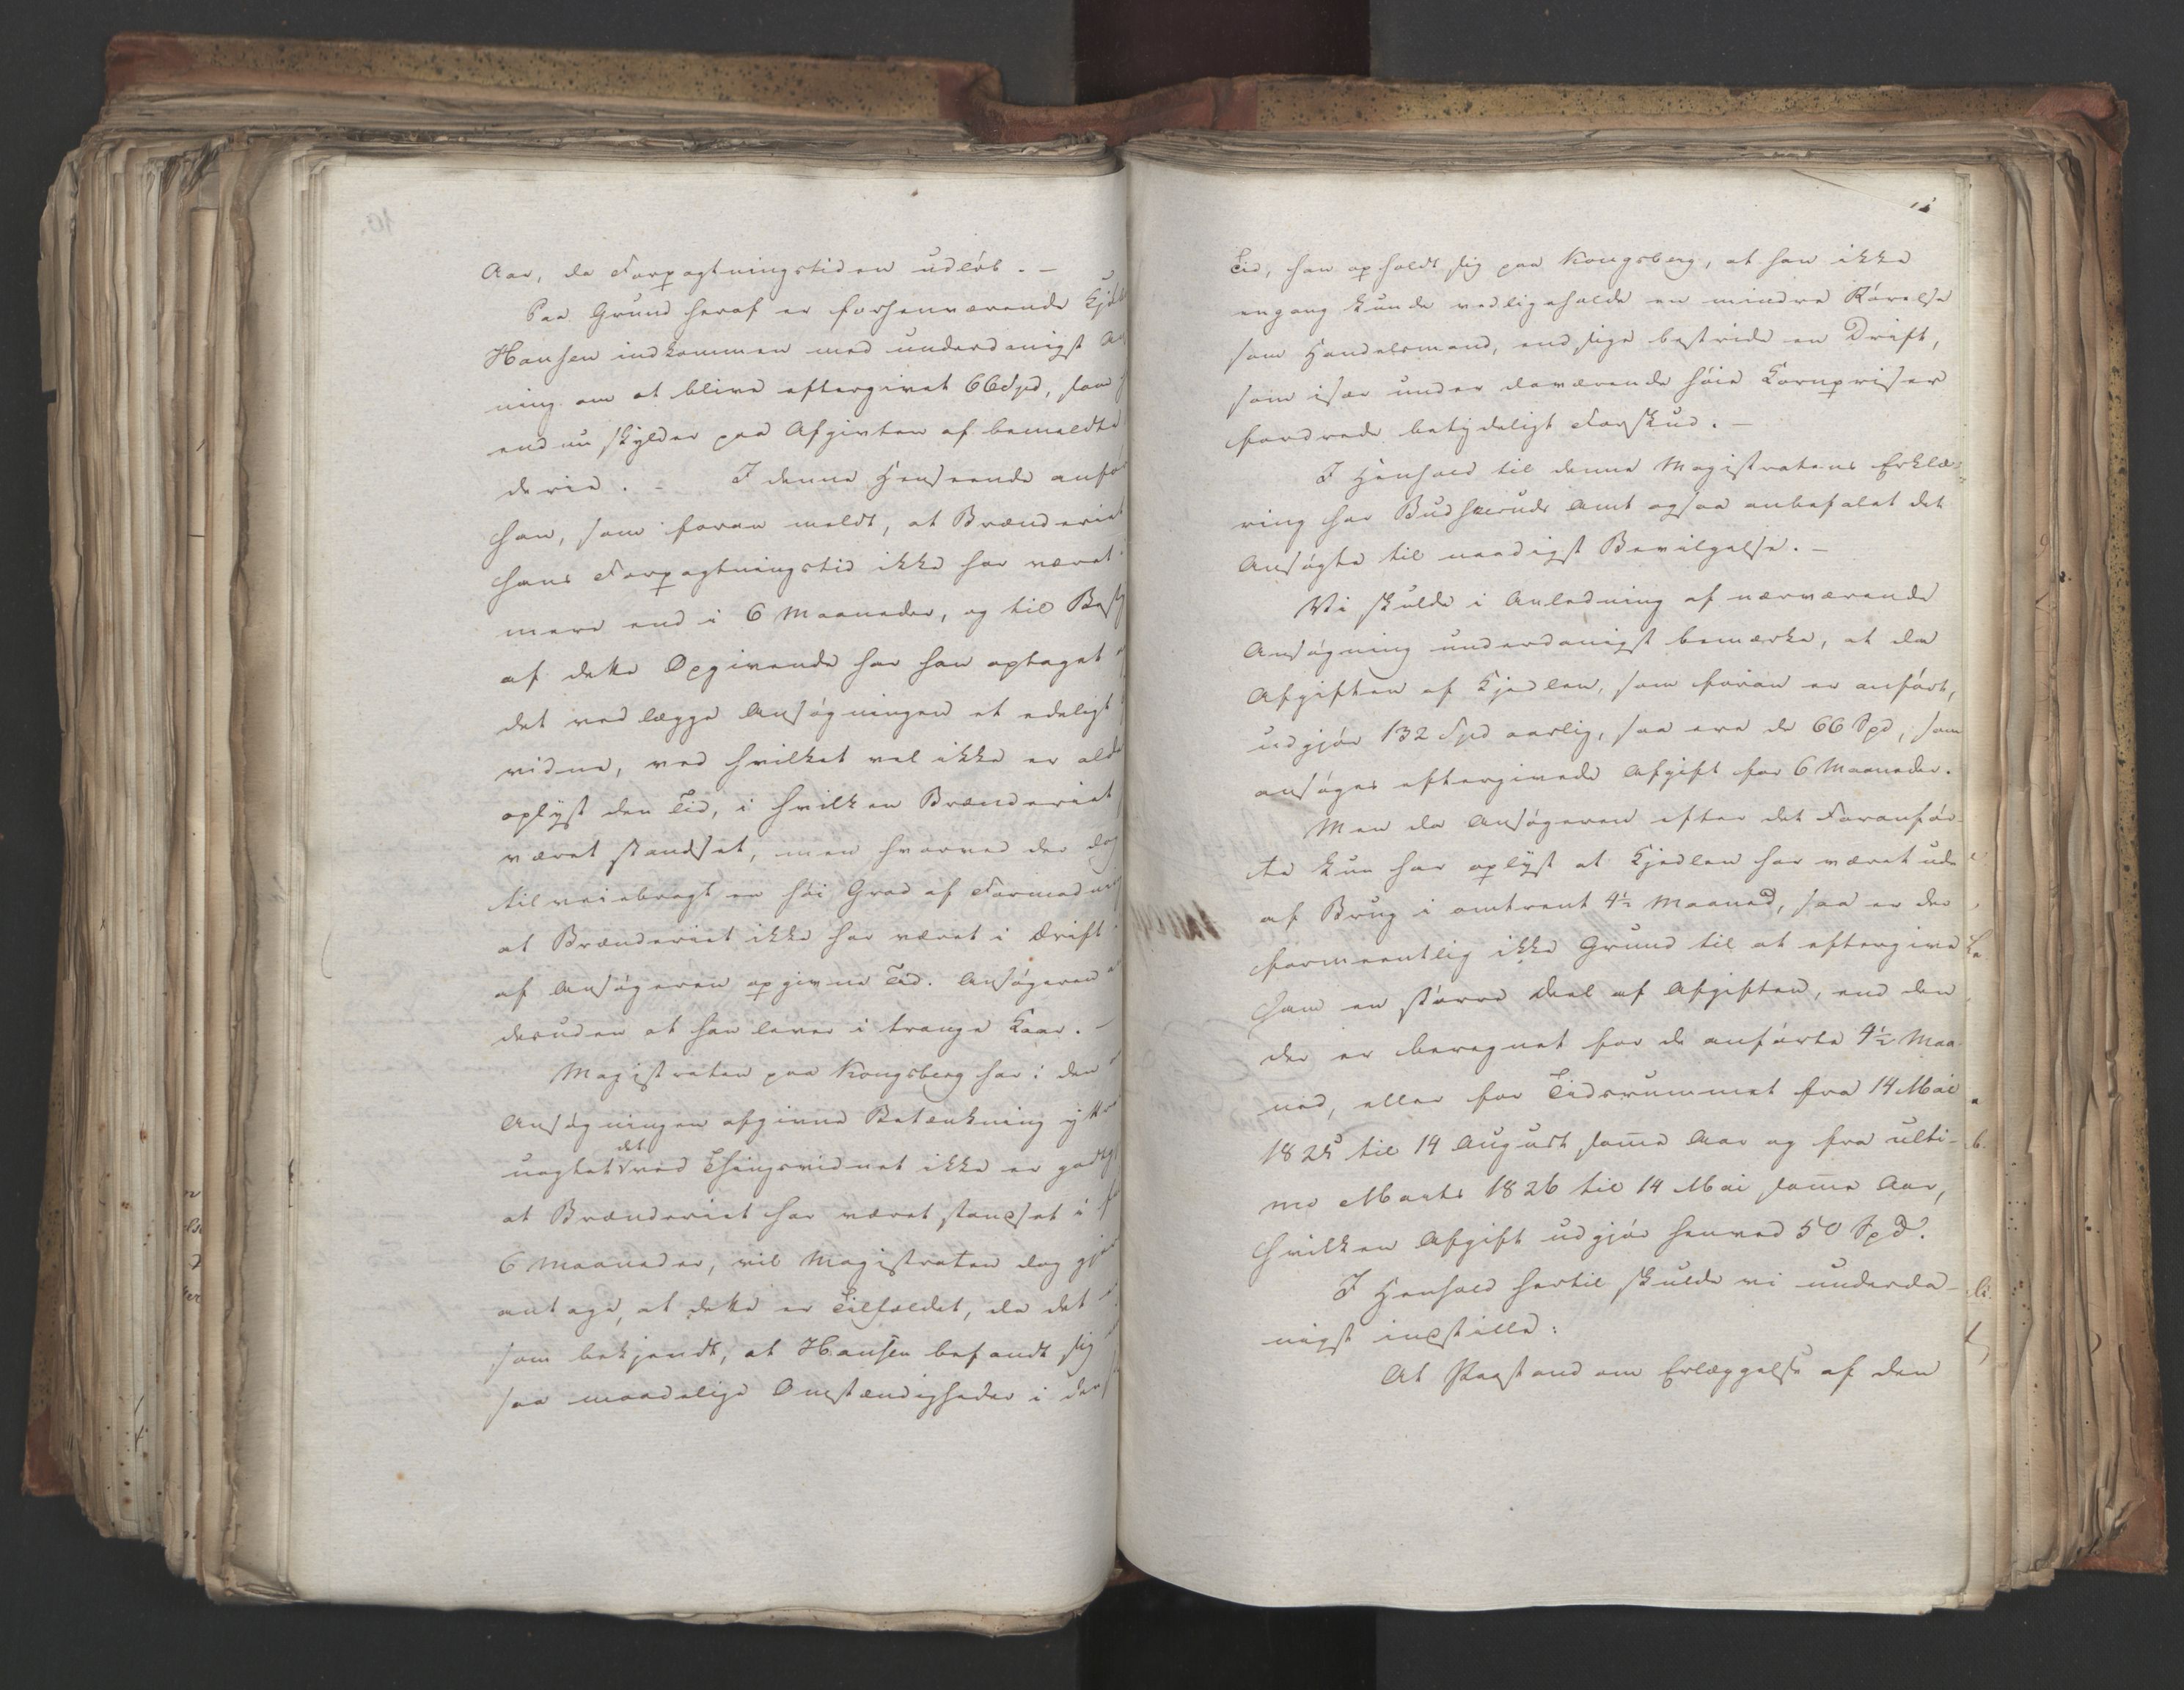 Aar, da Forpagtningstiden udløb. –
Paa Grund heraf er forhenværende
Hansen indkommen med underdanigst
ning om at blive eftergivet 66 Spd, som
endnu skylder paa Afgivten af bemeldte
derie. – I denne Henseende anfø
han, som foran meldt, at Brænderiet
hans Forpagtningstid ikke har været
mere end i 6 Maaneder, og til
af dette Opgivende har han optaget
det ved lægge Ansøgningen et edeligt
vidne, ved hvilket vel ikke er
oplyst den Tid, i hvilken Brænderiet
været standset, men hvorved der dog
tilveiebragt en høi Grad af
at Brænderiet ikke har været i Drift
af Ansøgeren opgivne Tid. Ansøgeren
desuden at han lever i trange Kaar. –
Magistraten paa Kongsberg har i den
Ansøgningen afgivne Betænkning
uagtet det ved Thingsvidnet ikke er
at Brænderiet har været standset i
6 Maaneder, vil Magistraten dog
antage, at dette er Tilfældet, da det
som bekjendt, at Hansen befandt sig
saa maadelige Omstændigheder i den
Tid, han opholdt sig paa Kongsberg, at han ikke
engang kunde vedligeholde en mindre Rørelse
som Handelsmand, endsige bestride en Drift,
som især under daværende høie Kornpriser
fordrede betydeligt Forskud. –
I Henhold til denne Magistratens Erklæ-
ring har Budskeruds Amt ogsaa anbefalet det
Ansøgte til naadigst Bevilgelse. –
Vi skulde i Anledning af nærværende
Ansøgning underdanigst bemærke, at da
Afgiften af Kjedlen, som foran er anført,
udgjør 132 Spd aarlig, saa ere de 66 Spd, som
ansøges eftergivede Afgift for 6 Maaneder.
Men da Ansøgeren efter det Foranfør-
te kun har oplyst at Kjedlen har været ude
af Brug i omtrent 4½ Maaned, saa er der
formeentlig ikke Grund til at eftergive
ham en større Deel af Afgiften, end den
der er beregnet for de anførte 4½ Maa-
ned, eller for Tidsrummet fra 14 Mai
1825 til 14 August samme Aar og fra ulti-
mo Marts 1826 til 14 Mai samme Aar,
hvilken Afgift udgjør henved 50 Spd.
I Henhold hertil skulde vi underda-
nigst indstille:
At Paastand om Erlæggelse af den